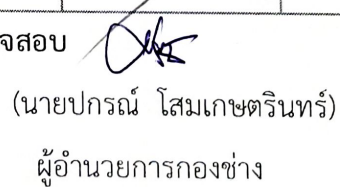 จสอบ
(นายปกรณ์ โสมเกษตรินทร์)
ผู้อำนวยการกองช่าง